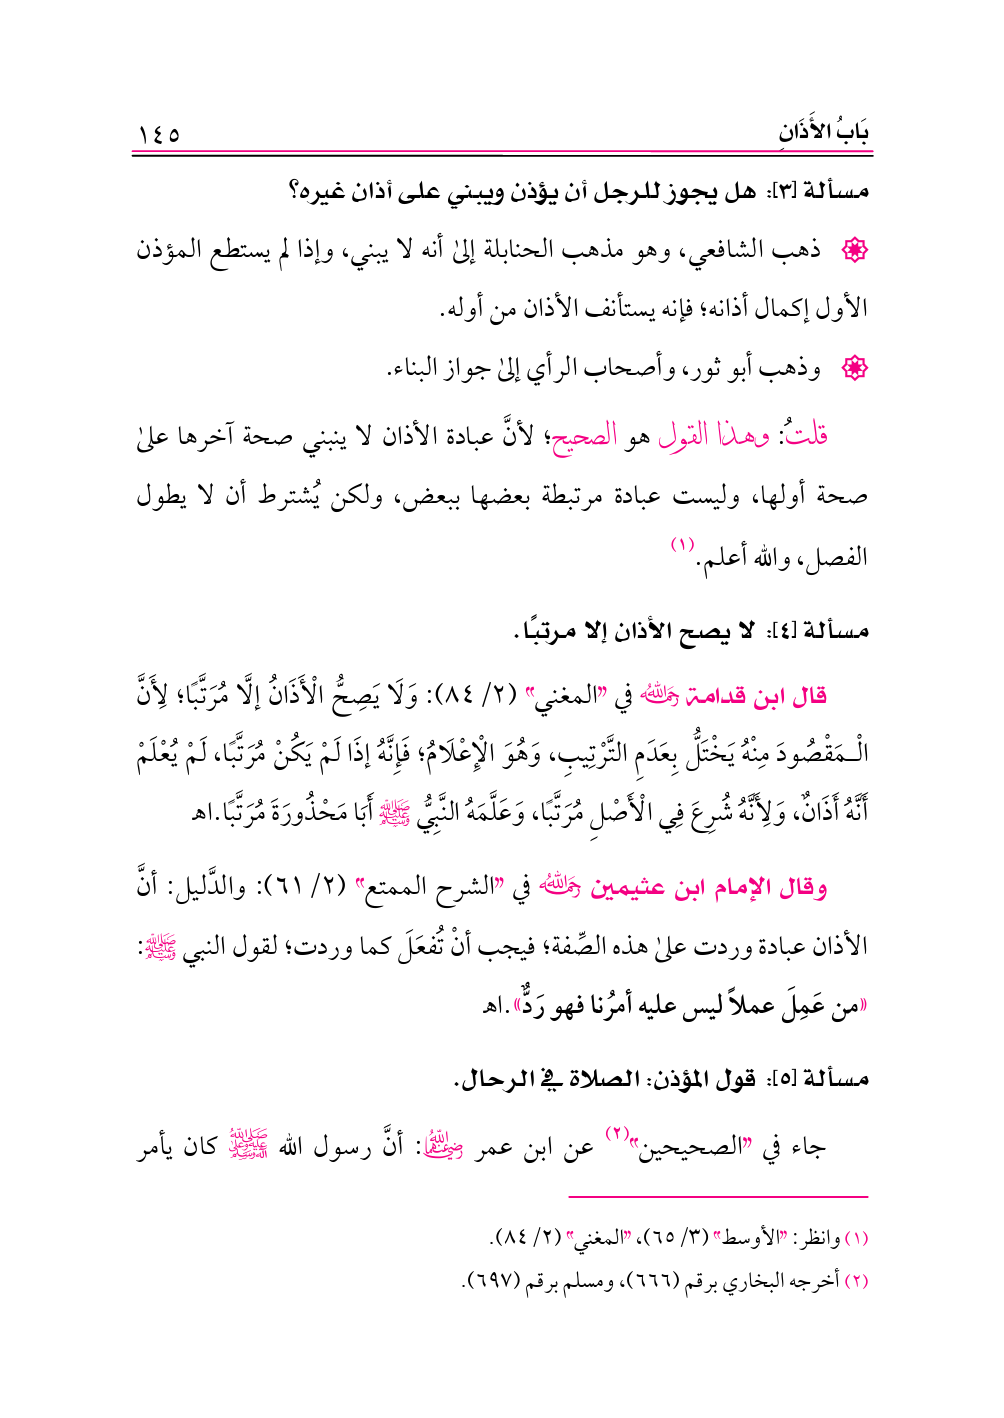 بَابُ الأَذَانِ
١٤٥
مسألة [٣]: هل يجوز للرجل أن يؤذن ويبني على أذان غيره؟
ذهب الشافعي، وهو مذهب الحنابلة إلىٰ أنه لا يبني، وإذا لم يستطع المؤذن
الأول إكمال أذانه؛ فإنه يستأنف الأذان من أوله.
وذهب أبو ثور، وأصحاب الرأي إلىٰ جواز البناء.
قلتُ: وهذا القول هو الصحيح؛ لأنَّ عبادة الأذان لا ينبني صحة آخرها علىٰ
صحة أولها، وليست عبادة مرتبطة بعضها ببعض، ولكن يُشترط أن لا يطول
الفصل، والله أعلم.(١)
مسألة [٤]: لا يصح الأذان إلا مرتبًا.
قال ابن قدامة رحمه الله في "المغني" (٢/ ٨٤): وَلَا يَصِحُّ الْأَذَانُ إلَّا مُرَتَّبًا؛ لِأَنَّ
الْـمَقْصُودَ مِنْهُ يَخْتَلُّ بِعَدَمِ التَّرْتِيبِ، وَهُوَ الْإِعْلَامُ؛ فَإِنَّهُ إذَا لَمْ يَكُنْ مُرَتَّبًا، لَمْ يُعْلَمْ
أَنَّهُ أَذَانٌ، وَلِأَنَّهُ شُرِعَ فِي الْأَصْلِ مُرَتَّبًا، وَعَلَّمَهُ النَّبِيُّ ﷺ أَبَا مَحْذُورَةَ مُرَتَّبًا.اهـ
وقال الإمام ابن عثيمين رحمه الله في "الشرح الممتع" (٢/ ٦١): والدَّليل: أنَّ
الأذان عبادة وردت علىٰ هذه الصِّفة؛ فيجب أنْ تُفعَلَ كما وردت؛ لقول النبي ﷺ:
«من عَمِلَ عملاً ليس عليه أمرُنا فهو رَدٌّ».اهـ
مسألة [٥]: قول المؤذن: الصلاة في الرحال.
جاء في "الصحيحين"(٢) عن ابن عمر رضي الله عنهما: أنَّ رسول الله ﷺ كان يأمر
(١) وانظر: "الأوسط" (٣/ ٦٥)، "المغني" (٢/ ٨٤).
(٢) أخرجه البخاري برقم (٦٦٦)، ومسلم برقم (٦٩٧).